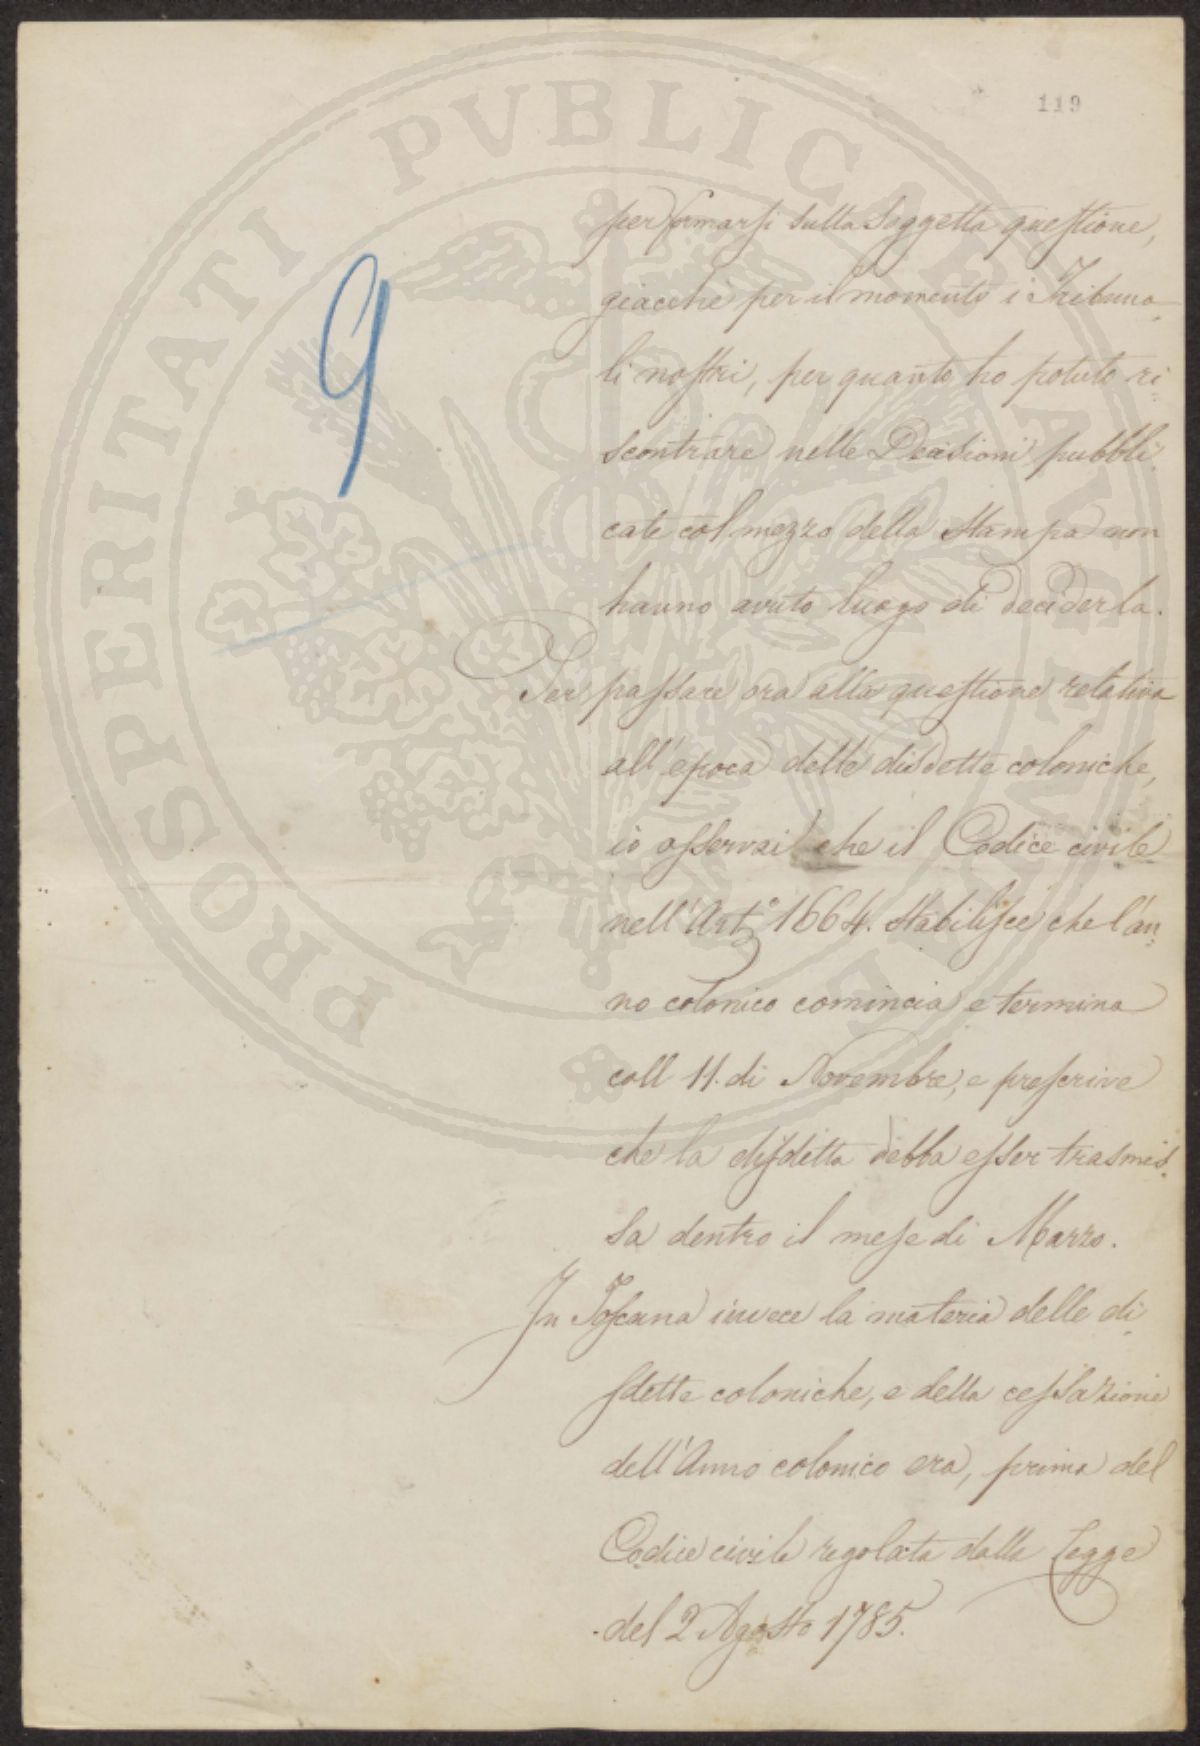 119
PROSPERITATI PVBLICAE AVGENDAE
9
performarsi sulla soggetta questione,
giacchè per il momento i Tribuna
li nostri, per quanto ho potuto ri
scontrare nelle Decisioni pubbli
cate col mezzo della Stampa non
hanno avuto luogo di deciderla.
Per passare ora alla questione relativa
all'epoca delle disdette coloniche,
io osservai che il Codice civile
nell'Art.° 1664. stabilisce che l'an
no colonico comincia e termina
coll 11. di Novembre, e prescrive
che la disdetta debba esser trasmes
sa dentro il mese di Marzo.
In Toscana invece la materia delle di
sdette coloniche, e della cessazione
dell'Anno colonico era, prima del
Codice civile regolata dalla Legge
del 2 Agosto 1785.